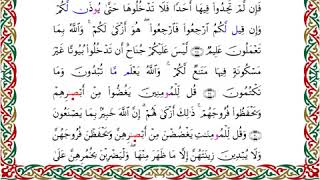 فَإِن لَّمْ تَجِدُوا۟ فِيهَآ أَحَدًا فَلَا تَدْخُلُوهَا حَتَّىٰ يُوذَنَ لَكُمْ
وَإِن قِيلَ لَكُمُ ٱرْجِعُوا۟ فَٱرْجِعُوا۟ هُوَ أَزْكَىٰ لَكُمْ وَٱللَّهُ بِمَا
تَعْمَلُونَ عَلِيمٌ لَّيْسَ عَلَيْكُمْ جُنَاحٌ أَن تَدْخُلُوا۟ بُيُوتًا غَيْرَ
مَسْكُونَةٍ فِيهَا مَتَـٰعٌ لَّكُمْ وَٱللَّهُ يَعْلَم مَّا تُبْدُونَ وَمَا
تَكْتُمُونَ قُل لِّلْمُومِنِينَ يَغُضُّوا۟ مِنْ أَبْصَـٰرِهِمْ
وَيَحْفَظُوا۟ فُرُوجَهُمْ ذَٰلِكَ أَزْكَىٰ لَهُمْ إِنَّ ٱللَّهَ خَبِيرٌۢ بِمَا يَصْنَعُونَ
وَقُل لِّلْمُومِنَـٰتِ يَغْضُضْنَ مِنْ أَبْصَـٰرِهِنَّ وَيَحْفَظْنَ فُرُوجَهُنَّ
وَلَا يُبْدِينَ زِينَتَهُنَّ إِلَّا مَا ظَهَرَ مِنْهَا وَلْيَضْرِبْنَ بِخُمُرِهِنَّ عَلَىٰ